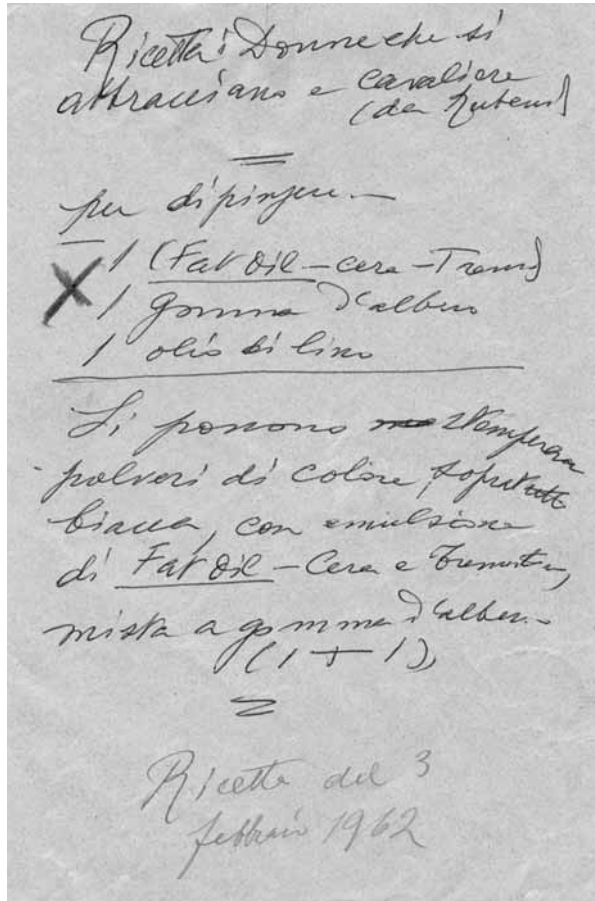 Ricetta: Donne che si
abbracciano e cavaliere
(da Rubens)
per dipingere.—
1 (Fat Oil – cera – Trem.)
X 1 gomma d'albero
1 olio di lino
Si possono stemperare
polveri di colore, sopratutto
biacca, con emulsione
di Fat Oil – Cera e Trementina,
mista a gomma d'albero.–
(1 + 1)
Ricetta del 3
febbraio 1962